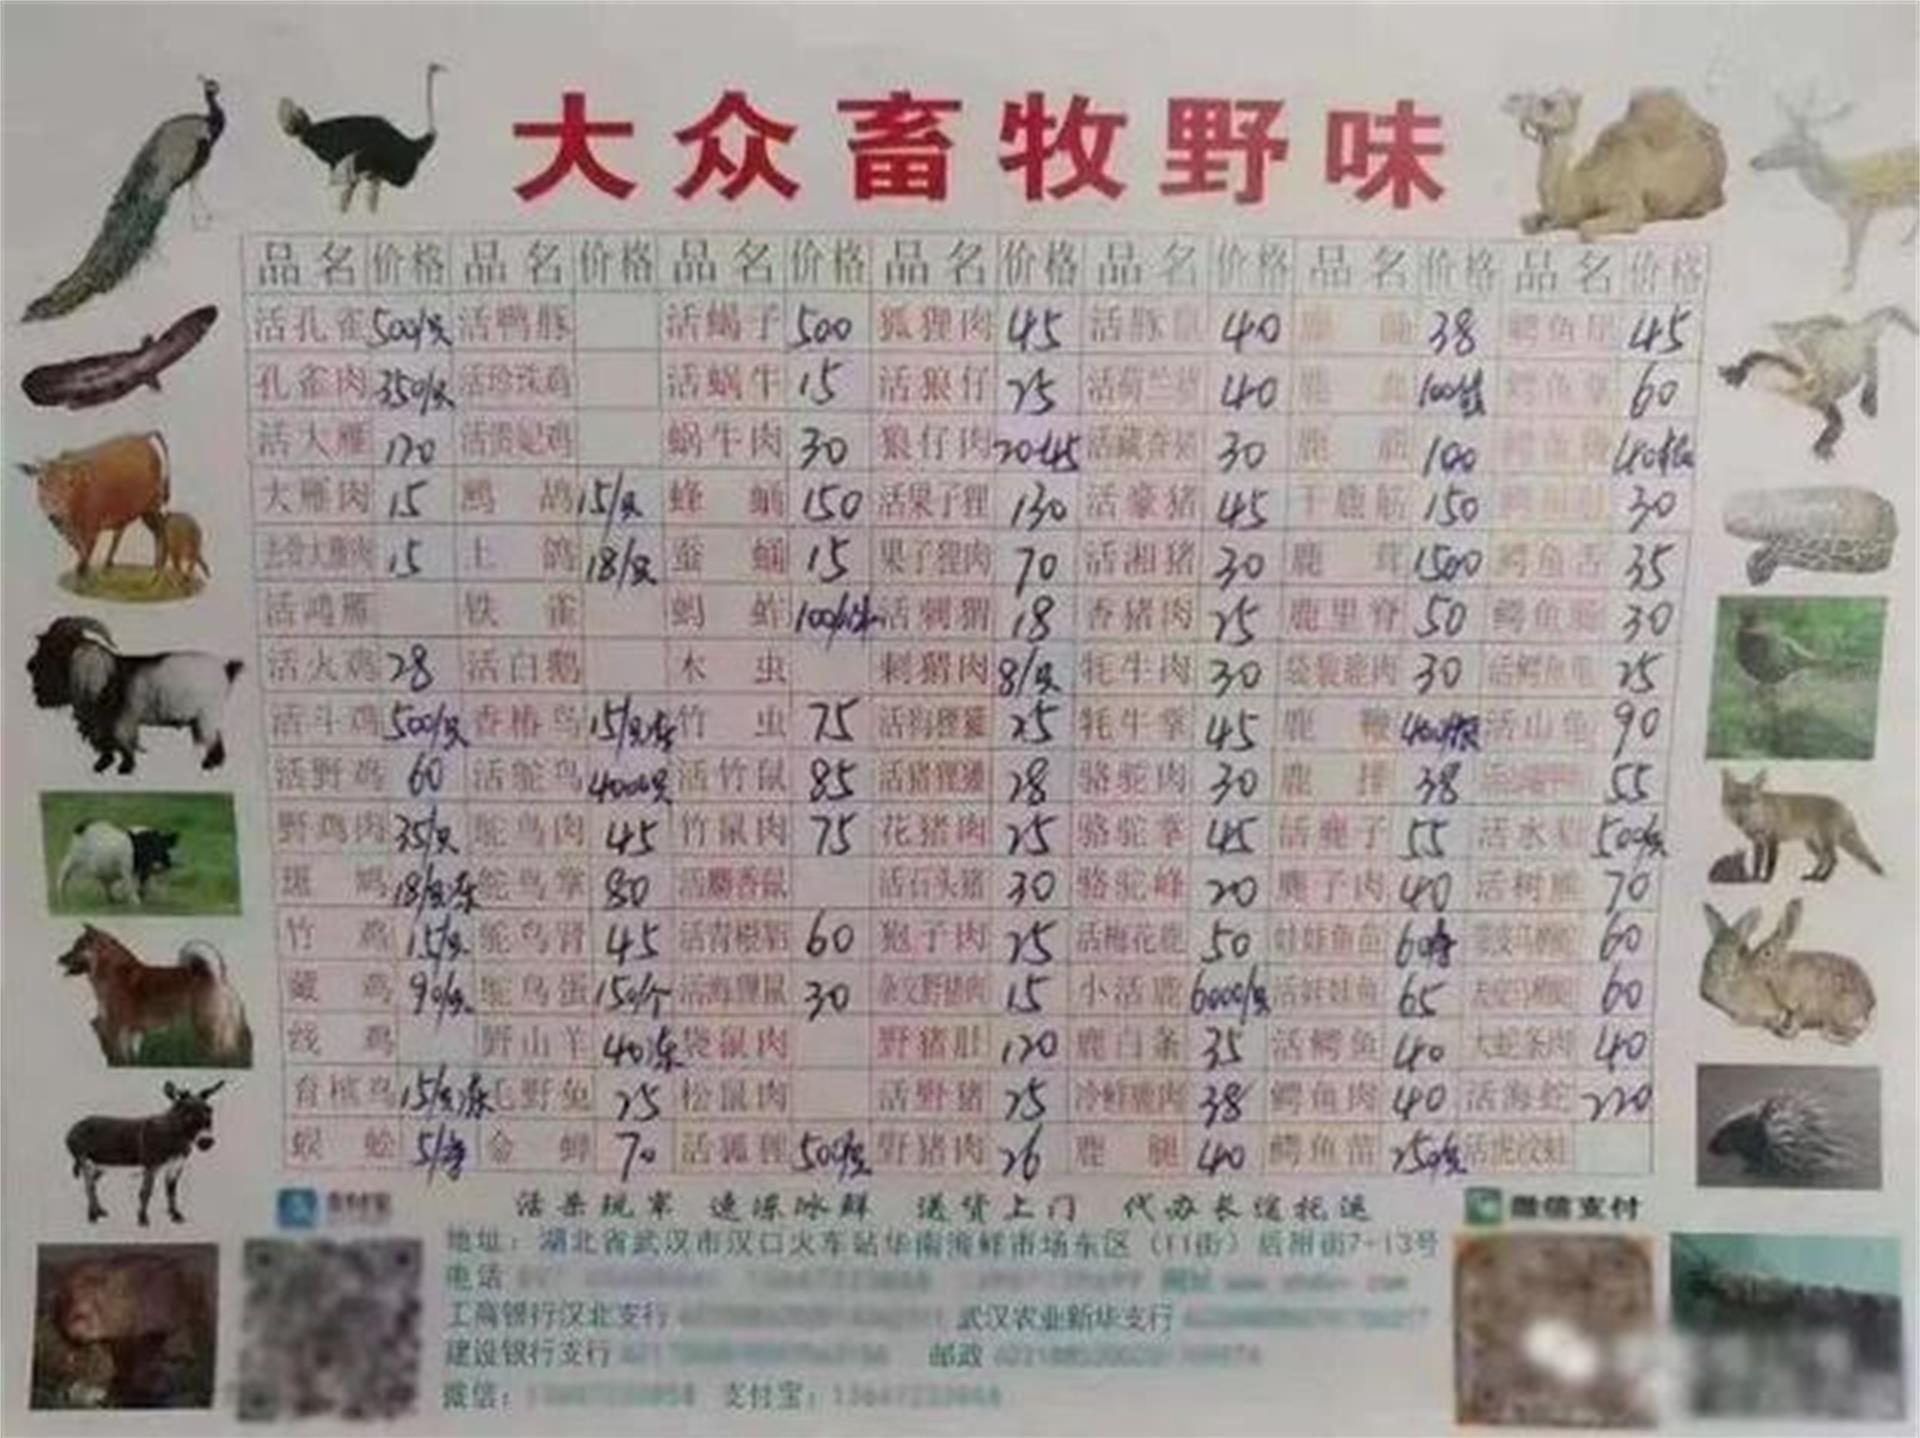 大众畜牧野味
品名 价格 品名 价格 品名 价格 品名 价格 品名 价格 品名 价格 品名 价格
活孔雀 500/只 活鸭豚 活蝎子 500 狐狸肉 45 活豚鼠 40 38 鳄鱼尾 45
孔雀肉 350/只 活珍珠鸡 活蜗牛 15 活狼仔 25 活荷兰猪 40 鹿血 鳄鱼掌 60
活大雁 120 活贵妃鸡 蜗牛肉 30 狼仔肉 20-45 活藏香猪 30 鹿 100 鳄鱼
大雁肉 15 鹧鸪 15/只 蜂蛹 150 活果子狸 130 活豪猪 45 干鹿筋 150 30
去骨大雁肉 15 土鸽 18/只 蚕蛹 15 果子狸肉 70 活湘猪 30 鹿茸 1500 鳄鱼舌 35
活鸿雁 铁雀 蚂蚱 活刺猬 18 香猪肉 25 鹿里脊 50 鳄鱼肠 30
活火鸡 28 活白鹅 木虫 刺猬肉 8/只 牦牛肉 30 袋装鹿肉 30 活鳄鱼龟 25
活斗鸡 500/只 香椿鸟 15/只冻 竹虫 75 活狗狸獾 25 牦牛掌 45 鹿鞭 400/根 活山龟 90
活野鸡 60 活鸵鸟 4000/只 活竹鼠 85 活猪狸獾 28 骆驼肉 30 鹿 38 55
野鸡肉 35/只 鸵鸟肉 45 竹鼠肉 75 花猪肉 25 骆驼掌 45 活麂子 55 活水 500/只
斑鸠 18/只冻 鸵鸟掌 80 活麝香鼠 活石头猪 30 骆驼峰 20 麂子肉 40 活树熊 70
竹鸡 15/只 鸵鸟肾 45 活青根貂 60 狍子肉 25 活梅花鹿 50 娃娃鱼苗 60
藏鸡 90/只 鸵鸟蛋 150/个 活海狸鼠 30 杂交野猪肉 15 小活鹿 6000/只 活娃娃鱼 65 60
线鸡 野山羊 40冻 袋鼠肉 野猪肚 120 鹿白条 35 活鳄鱼 40 大蛇条肉 40
育槟鸟 15/只冻 毛野兔 25 松鼠肉 活野猪 25 冷鲜鹿肉 38 鳄鱼肉 40 活海蛇 220
蜈蚣 金蝉 70 活狐狸 500/只 野猪肉 26 鹿腿 40 鳄鱼苗 250/只 活虎纹蛙
活杀现宰 速冻冰鲜 送货上门 代办长途托运
支付宝 微信支付
地址：湖北省武汉市汉口火车站华南海鲜市场东区（11街）后附街7-13号
电话
工商银行汉北支行 武汉农业新华支行
建设银行支行 邮政
微信： 支付宝：